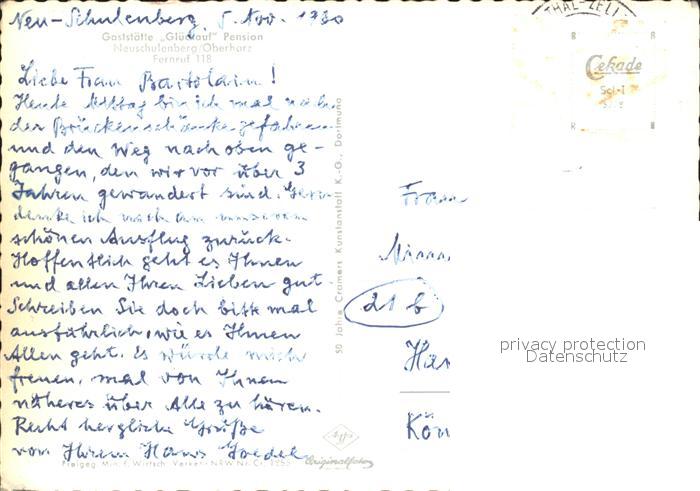 Neu-Schulenberg, 5. Nov. 1960
Gaststätte „Glückauf" Pension
Neuschulenberg/Oberharz
Fernruf 118
THAL-ZELL
Cekade
Liebe Frau
Heute Mittag bin ich mal nach
der Brückenschänke gefahren
und den Weg nach oben ge-
gangen, den wir vor über 3
Jahren gewandert sind. Gern
denke ich noch an unseren
schönen Ausflug zurück.
Hoffentlich geht es Ihnen
und allen Ihren Lieben gut.
Schreiben Sie doch bitte mal
ausführlich, wie es Ihnen
Allen geht. Es würde mich
freuen, mal von Ihnen
näheres über Alle zu hören.
Recht herzliche Grüße
von Ihrem Hans
Freigeg. Min. f. Wirtsch. Verkehr NRW Nr.
50 Jahre Cramers Kunstanstalt K.-G., Dortmund
Agfa
Originalfoto
Frau
21b
Han
Kön
privacy protection
Datenschutz